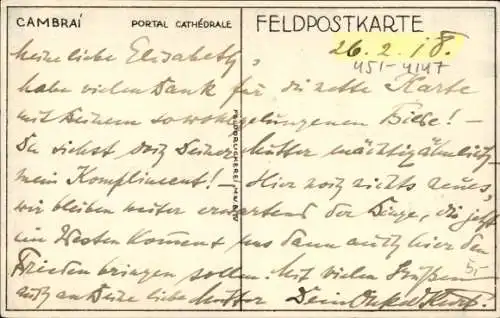 CAMBRAÍ PORTAL CATHÉDRALE FELDPOSTKARTE
26.2.18.
451-4147
Meine liebe Elisabeth,
habe vielen Dank für die nette Karte
mit Deinem so wohlgelungenen Bilde! –
Du siehst doch Deiner Mutter mächtig ähnlich,
mein Kompliment! – Hier noch nichts neues,
wir bleiben weiter erwartend der Dinge, die jetzt
im Westen kommen u. uns dann auch hier den
Frieden bringen sollen. Mit vielen Grüßen
auch an Deine liebe Mutter Dein Onkel
5,-